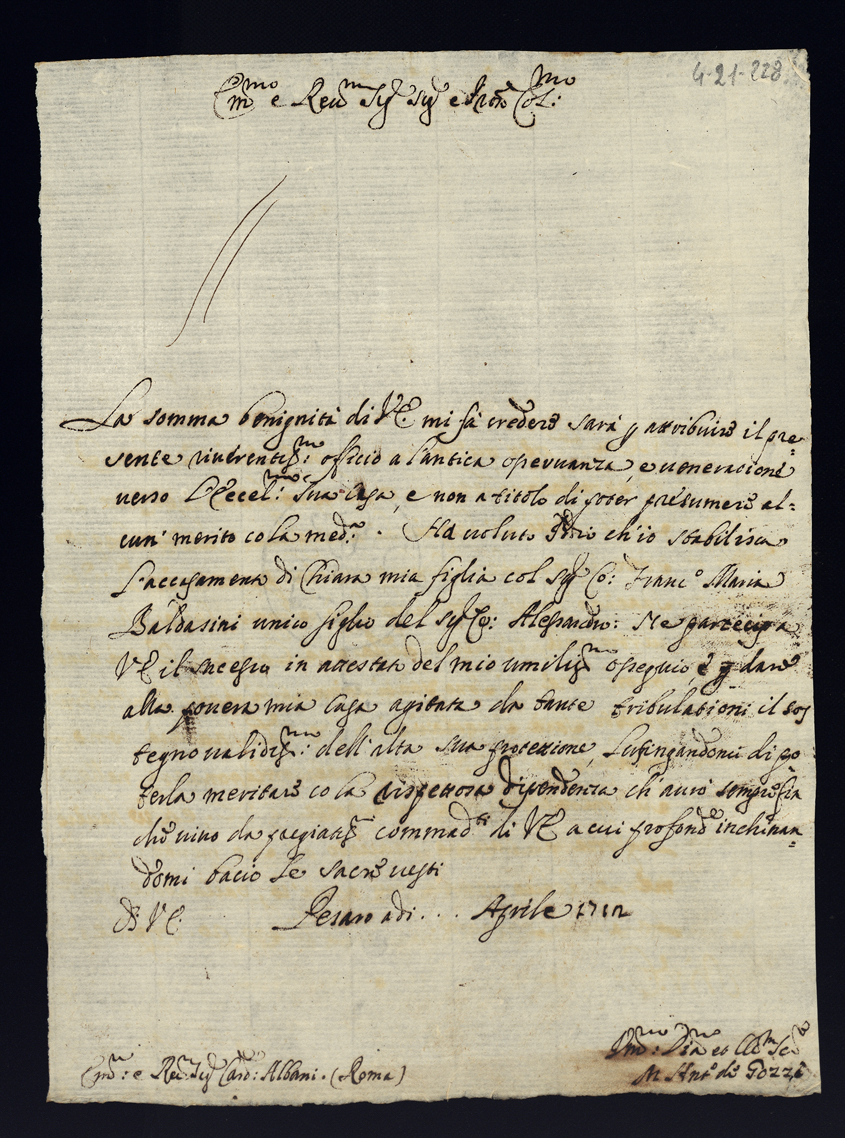 4-21-228
Em̃mo e Reumo Sigr Sigr e Pron Colmo:
La somma benignità di VE mi fà credere sarà p attribuire il pre=
sente riuerentissmo: officio a l'antica oseruanza, e ueneracione
uerso l'Eccelma: sua Casa, e non a titolo di poter presumere al=
cun' merito co la medma. Ha uoluto Iddio ch'io stabilisca
l'accasamento di Chiara mia figlia col sigr Co: Franco Maria
Baldasini unico figlio del sigr Co: Alessandro: Ne partecipo a
VE il sucesso in attestato del mio umilissmo osequio, e p dare
alla pouera mia Casa agitata da tante tribulationi il sos
tegno ualidissmo: dell'alta sua protezione, Lusingandomi di po
terla meritare co la rispettosa dipendenza ch'aurò sempre fin
che uiuo da pregiatissmi commadti di VE a cui profonde inchinan=
domi bacio le sacre uesti
Di VE Pesaro adi . . . Aprile 1712
Emo: e Reumo Sigr Card: Albani. (Roma)
Ummo: Diuno et Obbmo Sere
M Anto de Gozze